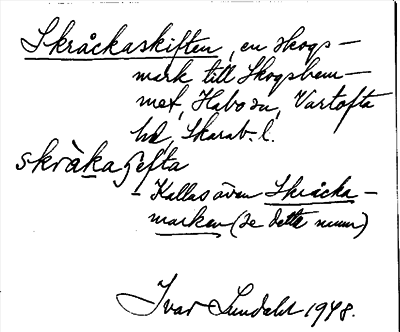 Skråckaskiften, en skogs-
mark till Skogshem-
met, Habo sn, Vartofta
hd, Skarab. l.
skràkaʃefta
- Kallas även Skråcka-
marken (se detta namn)
Ivar Lundahl 1948.